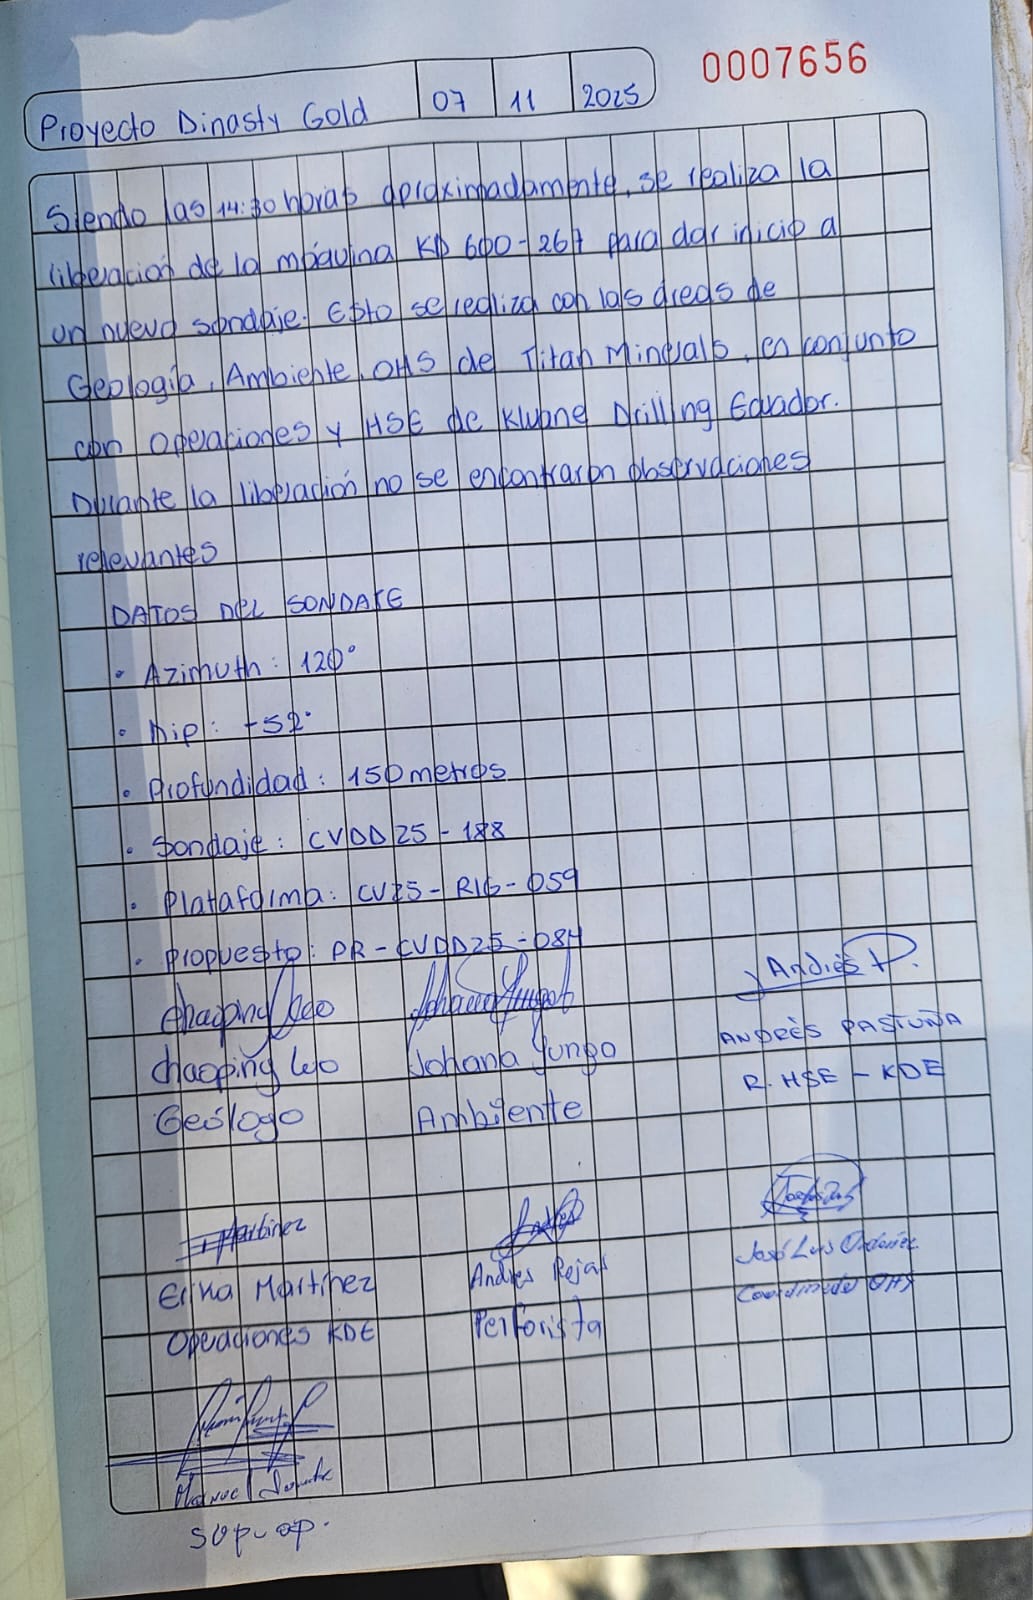 0007656
Proyecto Dinasty Gold 07 11 2025
Siendo las 14:30 horas aproximadamente, se realiza la
liberación de la máquina KD 600-267 para dar inicio a
un nuevo sondaje. Esto se realiza con las áreas de
Geología, Ambiente, OHS de Titan Minerals, en conjunto
con Operaciones y HSE de Kluane Drilling Ecuador.
Durante la liberación no se encontraron observaciones
relevantes
DATOS DEL SONDAJE
• Azimuth: 120°
• Dip: -52°
• Profundidad: 150 metros
• Sondaje: CVDD25-188
• Plataforma: CV25-R16-059
• Propuesto: PR-CVDD25-084
Andrés P.
Chaoping Luo Johana Yungo ANDRÈS PASTUÑA
Geólogo Ambiente R. HSE - KDE
Martinez
Erika Martínez Andres Rojas José Luis Ordoñez
Operaciones KDE Perforista Coordinador OHS
Manuel
sup-op.